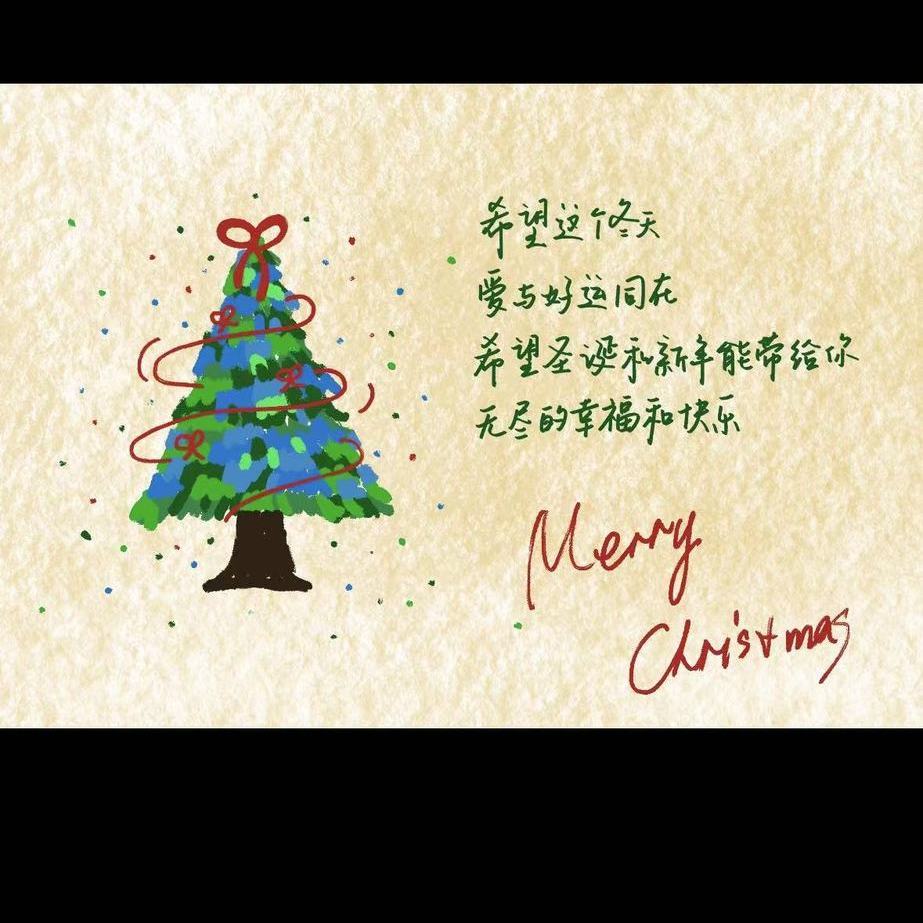 希望这个冬天
爱与好运同在
希望圣诞和新年能带给你
无尽的幸福和快乐
Merry
Christmas